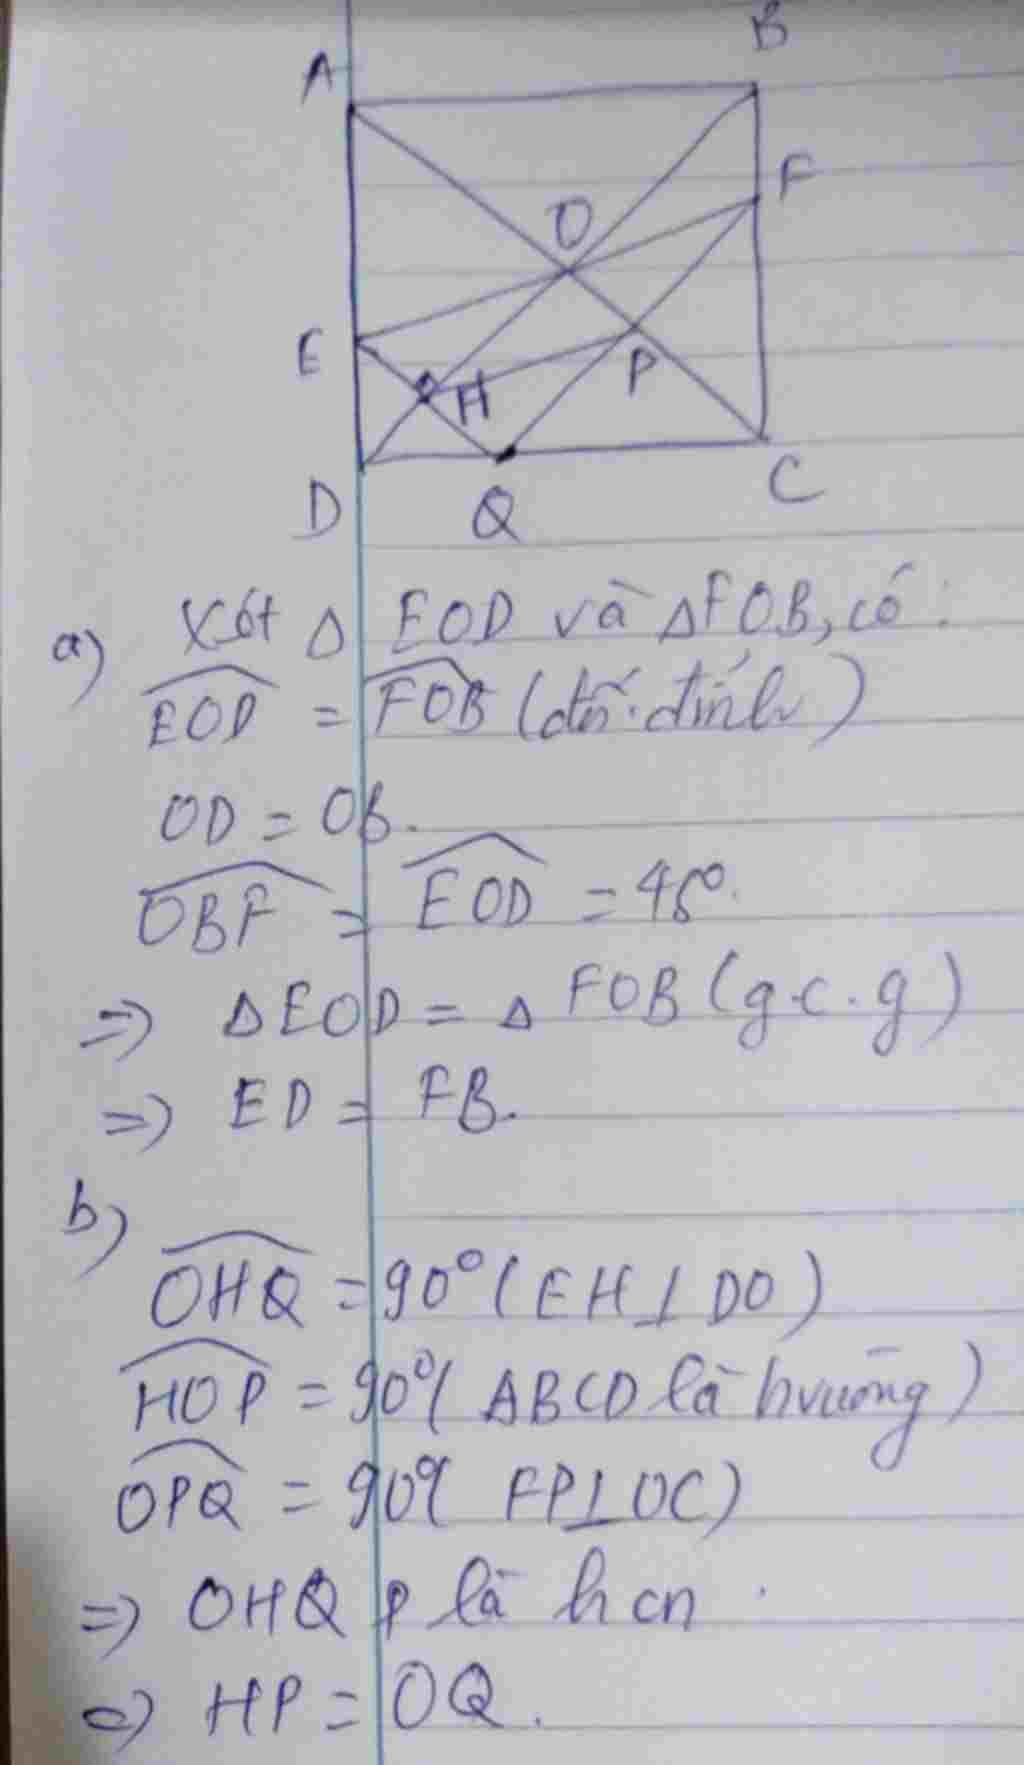 A
B
F
O
E
H
P
D
Q
C
a) Xét Δ EOD và ΔFOB, có :
EOD = FOB (đối đỉnh)
OD = OB.
OBF = EOD = 45°.
=> ΔEOD = Δ FOB (g.c.g)
=> ED = FB.
b)
OHQ = 90° ( EH ⊥ DO )
HOP = 90° ( ABCD là hvuông )
OPQ = 90° ( FP ⊥ OC )
=> OHQP là hcn .
=> HP = OQ .